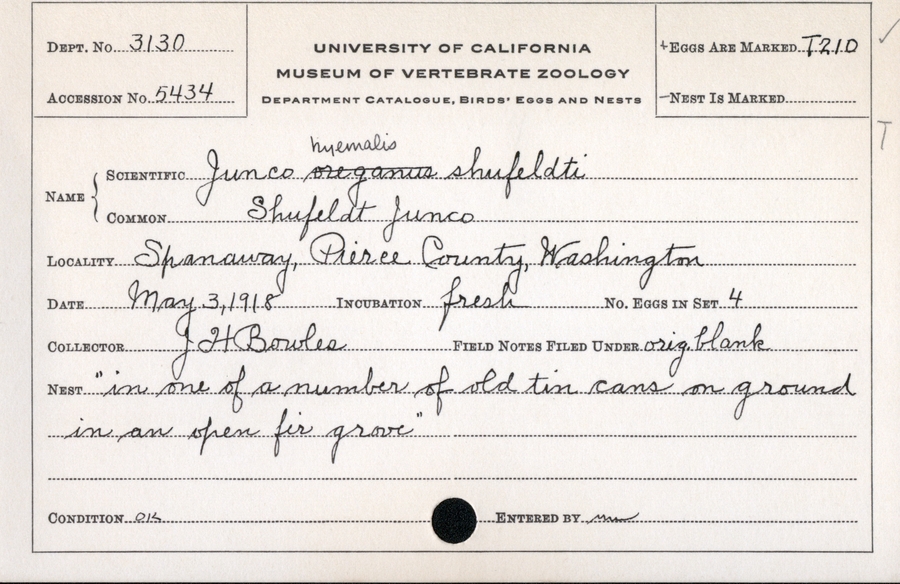 DEPT. No. 3130
ACCESSION No. 5434
UNIVERSITY OF CALIFORNIA
MUSEUM OF VERTEBRATE ZOOLOGY
DEPARTMENT CATALOGUE, BIRDS' EGGS AND NESTS
+EGGS ARE MARKED T210
-NEST IS MARKED
T
hyemalis
NAME { SCIENTIFIC Junco oreganus shufeldti
COMMON Shufeldt Junco
LOCALITY Spanaway, Pierce County, Washington
DATE May 3, 1918 INCUBATION fresh No. EGGS IN SET 4
COLLECTOR J H Bowles FIELD NOTES FILED UNDER orig. blank
NEST "in one of a number of old tin cans on ground
in an open fir grove"
CONDITION OK ENTERED BY